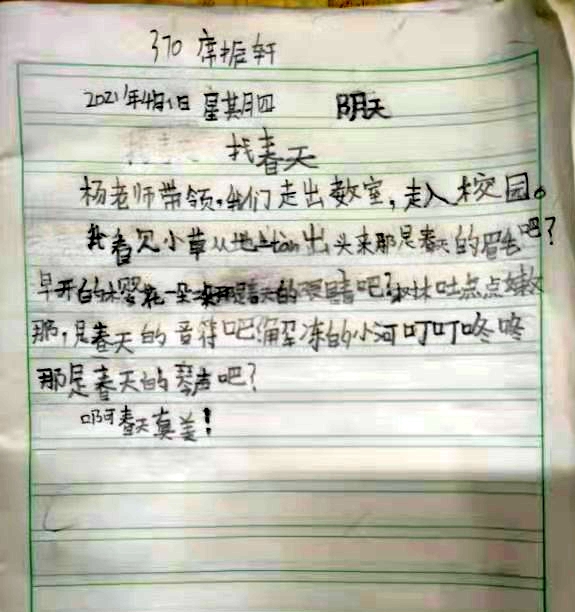 370 席振轩
2021年4月1日 星期四 阴天
找春天
杨老师带领,我们走出教室,走入校园。
我看见小草从地上tan出头来那是春天的眉毛吧?
早开的樱花一朵来那是春天的眼睛吧?树林吐点点嫩
那,是春天的音符吧解冻的小河叮叮咚咚
那是春天的琴声吧?
啊春天真美!